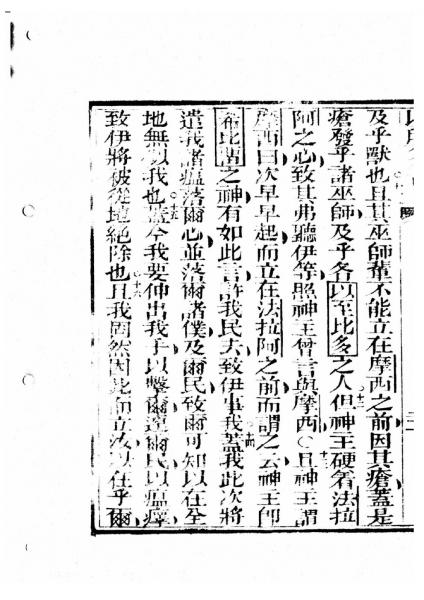 及乎獸也且其巫師輩不能立在摩西之前因其瘡蓋是
瘡發乎諸巫師及乎各以至比多之人但神王硬着法拉
阿之心致其弗聽伊等照神王曾言與摩西○且神王謂
摩西曰次早早起而立在法拉阿之前而謂之云神王即
希比留之神有如此言許我民去致伊事我蓋我此次將
遣我諸瘟落爾心並落爾諸僕及爾民致爾可知以在全
地無似我也蓋今我要伸出我手以擊爾連爾民以瘟瘴
致伊將被從地絕除也且我固然因此而立汝以在乎爾